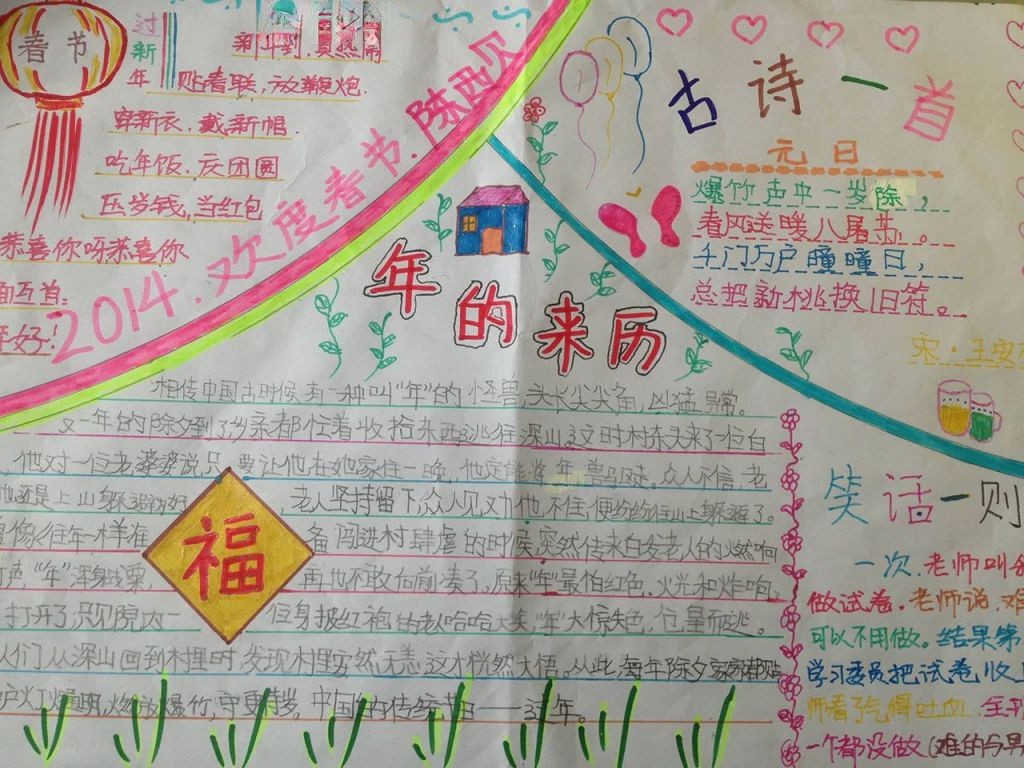 春节
过新年
新年到,真热闹
贴春联,放鞭炮.
穿新衣.戴新帽.
吃年饭.庆团圆
压岁钱,当红包
恭喜你呀恭喜你
面互首:
好!
2014.欢度春节.陈西贝
古诗一首
元日
爆竹声中一岁除,
春风送暖入屠苏。
千门万户曈曈日,
总把新桃换旧符。
宋·王安
年的来历
相传中国古时候有一种叫“年”的怪兽,头长尖尖角,凶猛异常。
又一年的除夕到了,乡亲都忙着收拾东西逃往深山,这时村东头来了一位白
他对一位老婆婆说只要让他在她家住一晚,他定能将年兽驱走,众人不信,老
他还是上山躲避的好,老人坚持留下,众人见劝他不住,便纷纷往山上躲避了。
像往年一样准备闯进村肆虐的时候,突然传来白发老人的燃响
声“年”浑身战栗,再也不敢向前凑了,原来“年”最怕红色,火光和炸响。
打开了,只见院内一位身披红袍的老人哈哈大笑,“年”大惊失色,仓皇而逃。
人们从深山回到村里时,发现村里安然无恙,这才恍然大悟。从此,每年除夕,家家都贴
户户灯火通明,燃放爆竹,守更待岁。中国的传统节日——过年。
福
笑话一则
一次.老师叫
做试卷.老师说,难
可以不用做。结果第
学习委员把试卷收上
师看了气得吐血.全
一个都没做(难的与